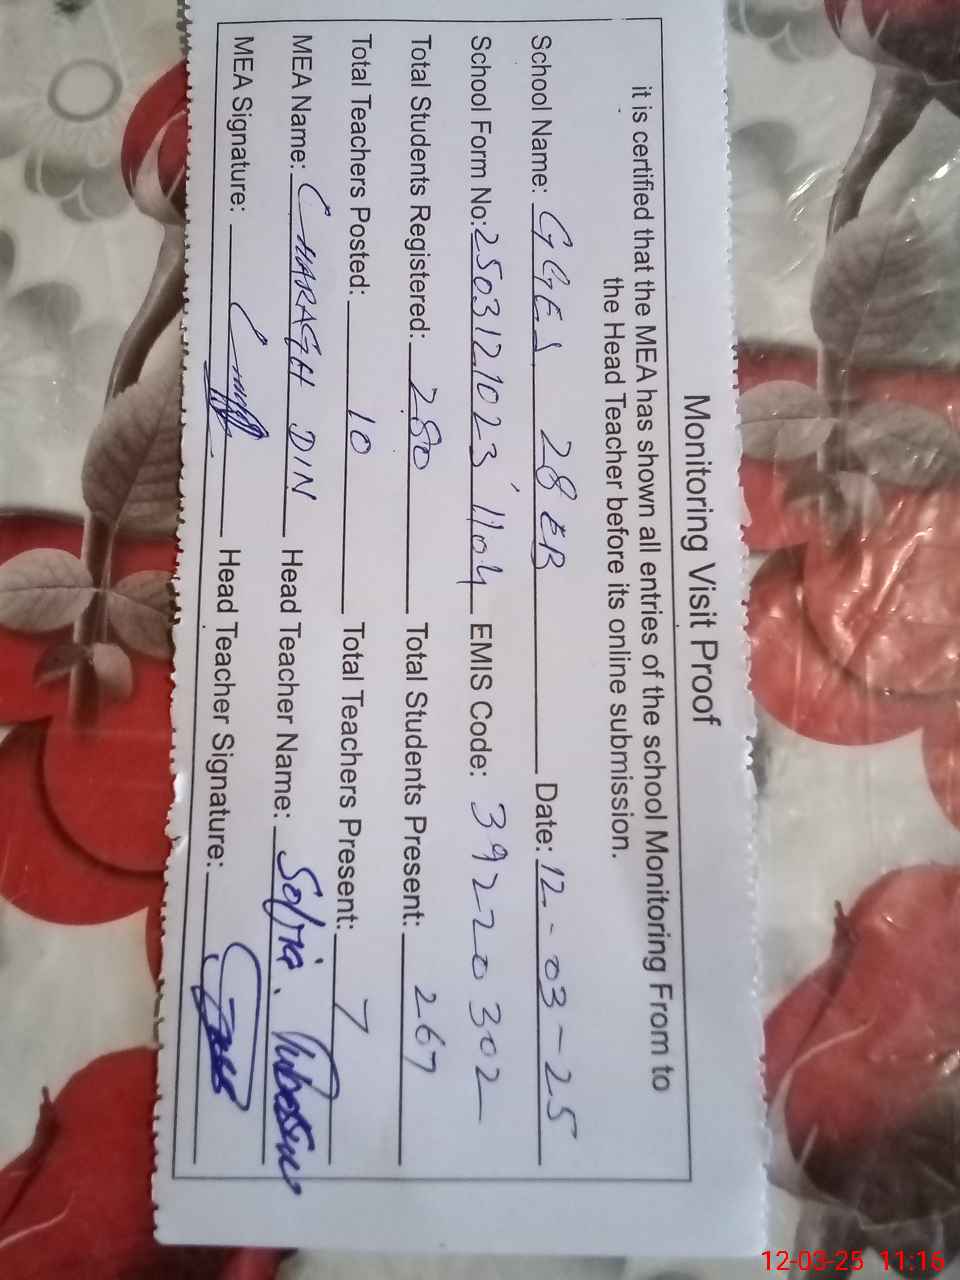 Monitoring Visit Proof
it is certified that the MEA has shown all entries of the school Monitoring From to
the Head Teacher before its online submission.
School Name: GGES 28 EB Date: 12-03-25
School Form No: 25031210231104 EMIS Code: 39220302
Total Students Registered: 280 Total Students Present: 267
Total Teachers Posted: 10 Total Teachers Present: 7
MEA Name: CHARAGH DIN Head Teacher Name:
MEA Signature: Head Teacher Signature:
12-03-25 11:16